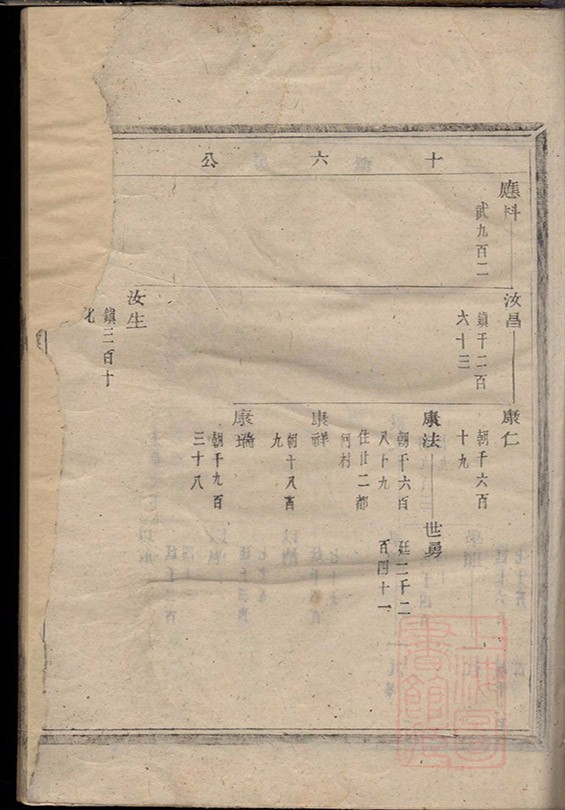 十六公
應科
武九百二
汝昌
鎮千二百
六十三
汝生
鎮三百十
康仁
朝千六百
十九
康法
朝千六百
八十九
住廿二都
何村
世勇
廷二千二
百四十一
康祥
朝十八百
九
康瑞
朝千九百
三十八
上海圖
書館藏